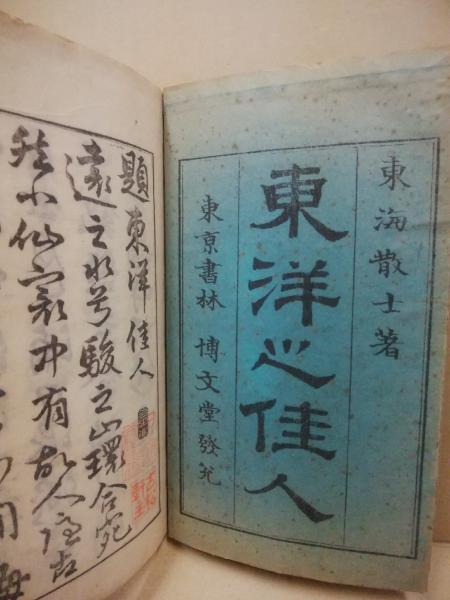 東海散士著
東洋之佳人
東京書林 博文堂發兌
題東洋佳人
遠之水兮駿之山環合宛
然小仙寰中有故人隱